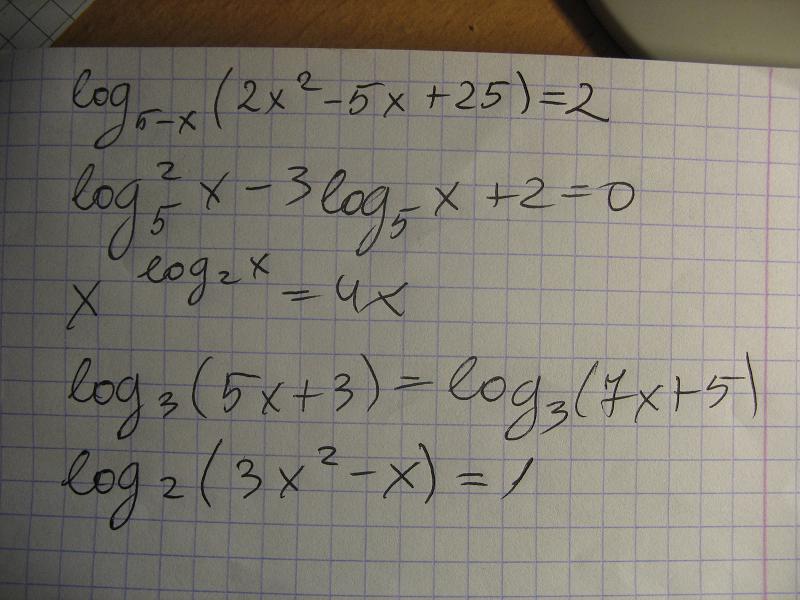 log₅₋ₓ(2x²-5x+25)=2
log₅²x-3log₅x+2=0
x^(log₂x)=4x
log₃(5x+3)=log₃(7x+5)
log₂(3x²-x)=1